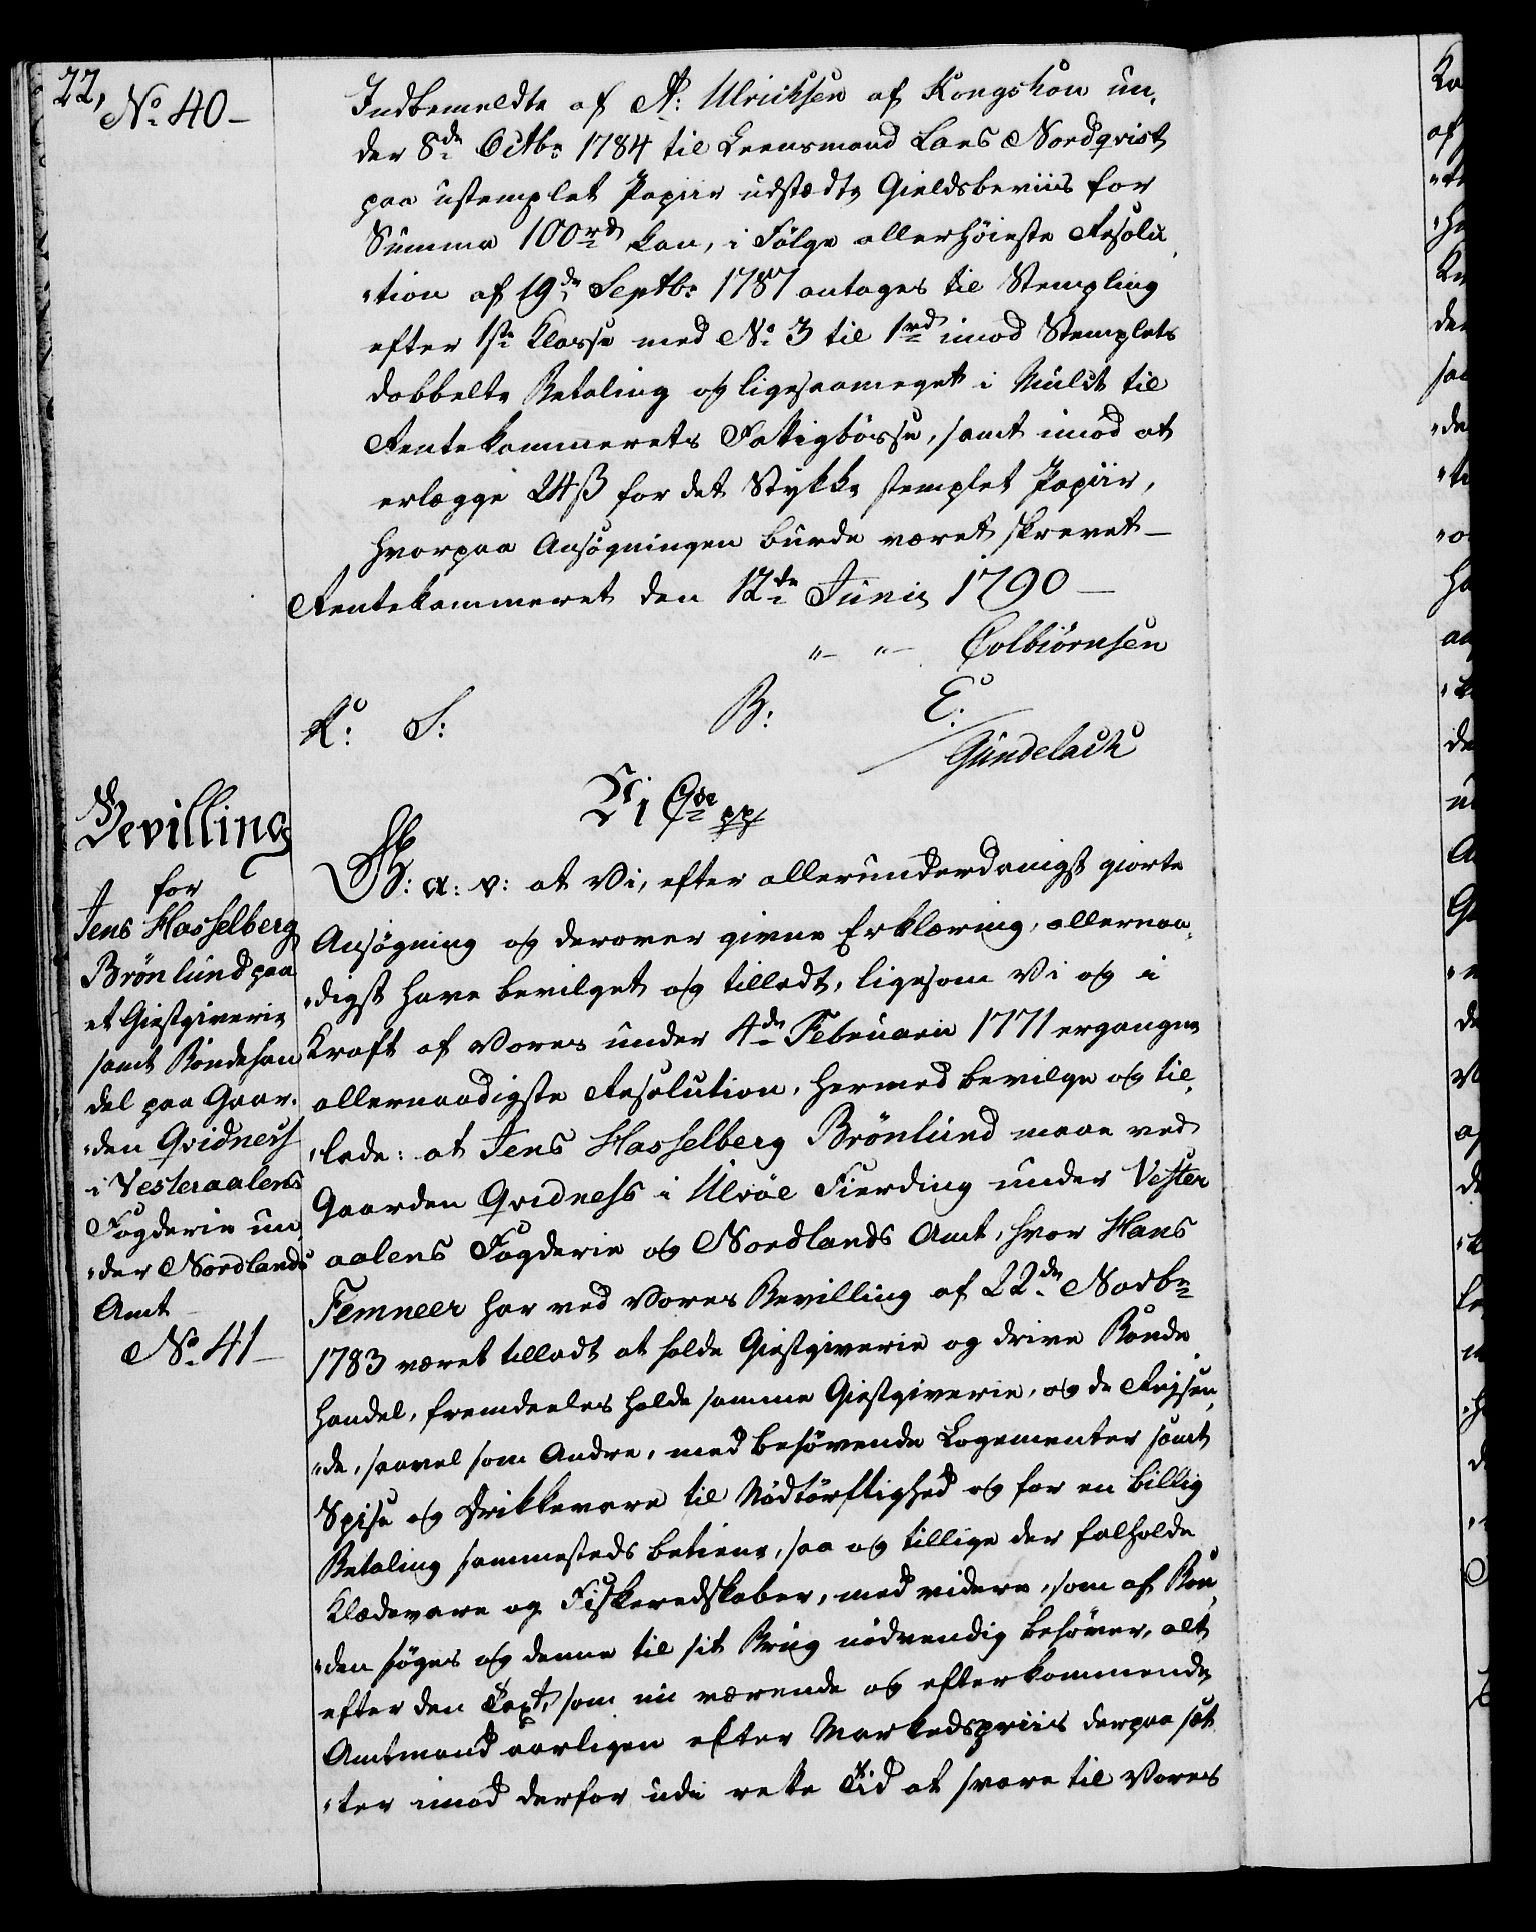 22,
No 40 –
Indbemeldte af A: Ulrichsen af Kongshon un,
der 8de Octbr 1784 til Leensmand Lars Nordqvist
paa ustemplet Papiir udstædte Gieldsbeviis for
Summa 100 rd kan, i Følge allerhöieste Resolu,
„tion af 19de Septbr 1787 antages til Stempling
efter 1ste Klasse med No 3 til 1 rd imod Stemplets
dobbelte Betaling og ligesaameget i Mulct til
Rentekammerets Fattigbösse, samt imod at
erlægge 24 ß for det Stykke stemplet Papiir,
hvorpaa Ansögningen burde været skrevet –
Rentekammeret den 12te Junii 1790 –
„– „– Colbiørnsen
R: S: B: C:
Gundelach
Bevilling
for
Jens Hasselberg
Brönlund paa
et Giestgiverie
samt Bondehan
del paa Gaar,
„den Qvidness
i Vesteraalens
Fogderie un,
„der Nordlands
Amt
No 41 –
Vi C 7de pp
G: a: v: at Vi, efter allerunderdanigst giorte
Ansögning og derover givne Erklæring, allernaa,
„digst have bevilget og tilladt, ligesom Vi og i
Kraft af Vores under 4de Februarii 1771 ergangne
allernaadigste Resolution, hermed bevilge og til,
„lade: at Jens Hasselberg Brönlund maae ved
Gaarden Qvidness i Ulvöe Fierding under Vester
aalens Fogderie og Nordlands Amt, hvor Hans
Femneer har ved Vores Bevilling af 22de Novbr
1783 været tilladt at holde Giestgiverie og drive Bonde
handel, fremdeeles holde samme Giestgiverie, og de Reisen,
„de, saavel som Andre, med behövende Logementer samt
Spise og Drikkevare til Nödtörftighed og for en billig
Betaling sammesteds betiene, saa og tillige der falholde
Klædevare og Fiskeredskaber, med videre, som af Bon,
„den söges og denne til sit Brug nödvendig behöver, alt
efter den Taxt, som nu værende og efterkommende
Amtmand aarligen efter Markedspriis derpaa sæt
„ter imod derfor udi rette Tid at svare til Vores